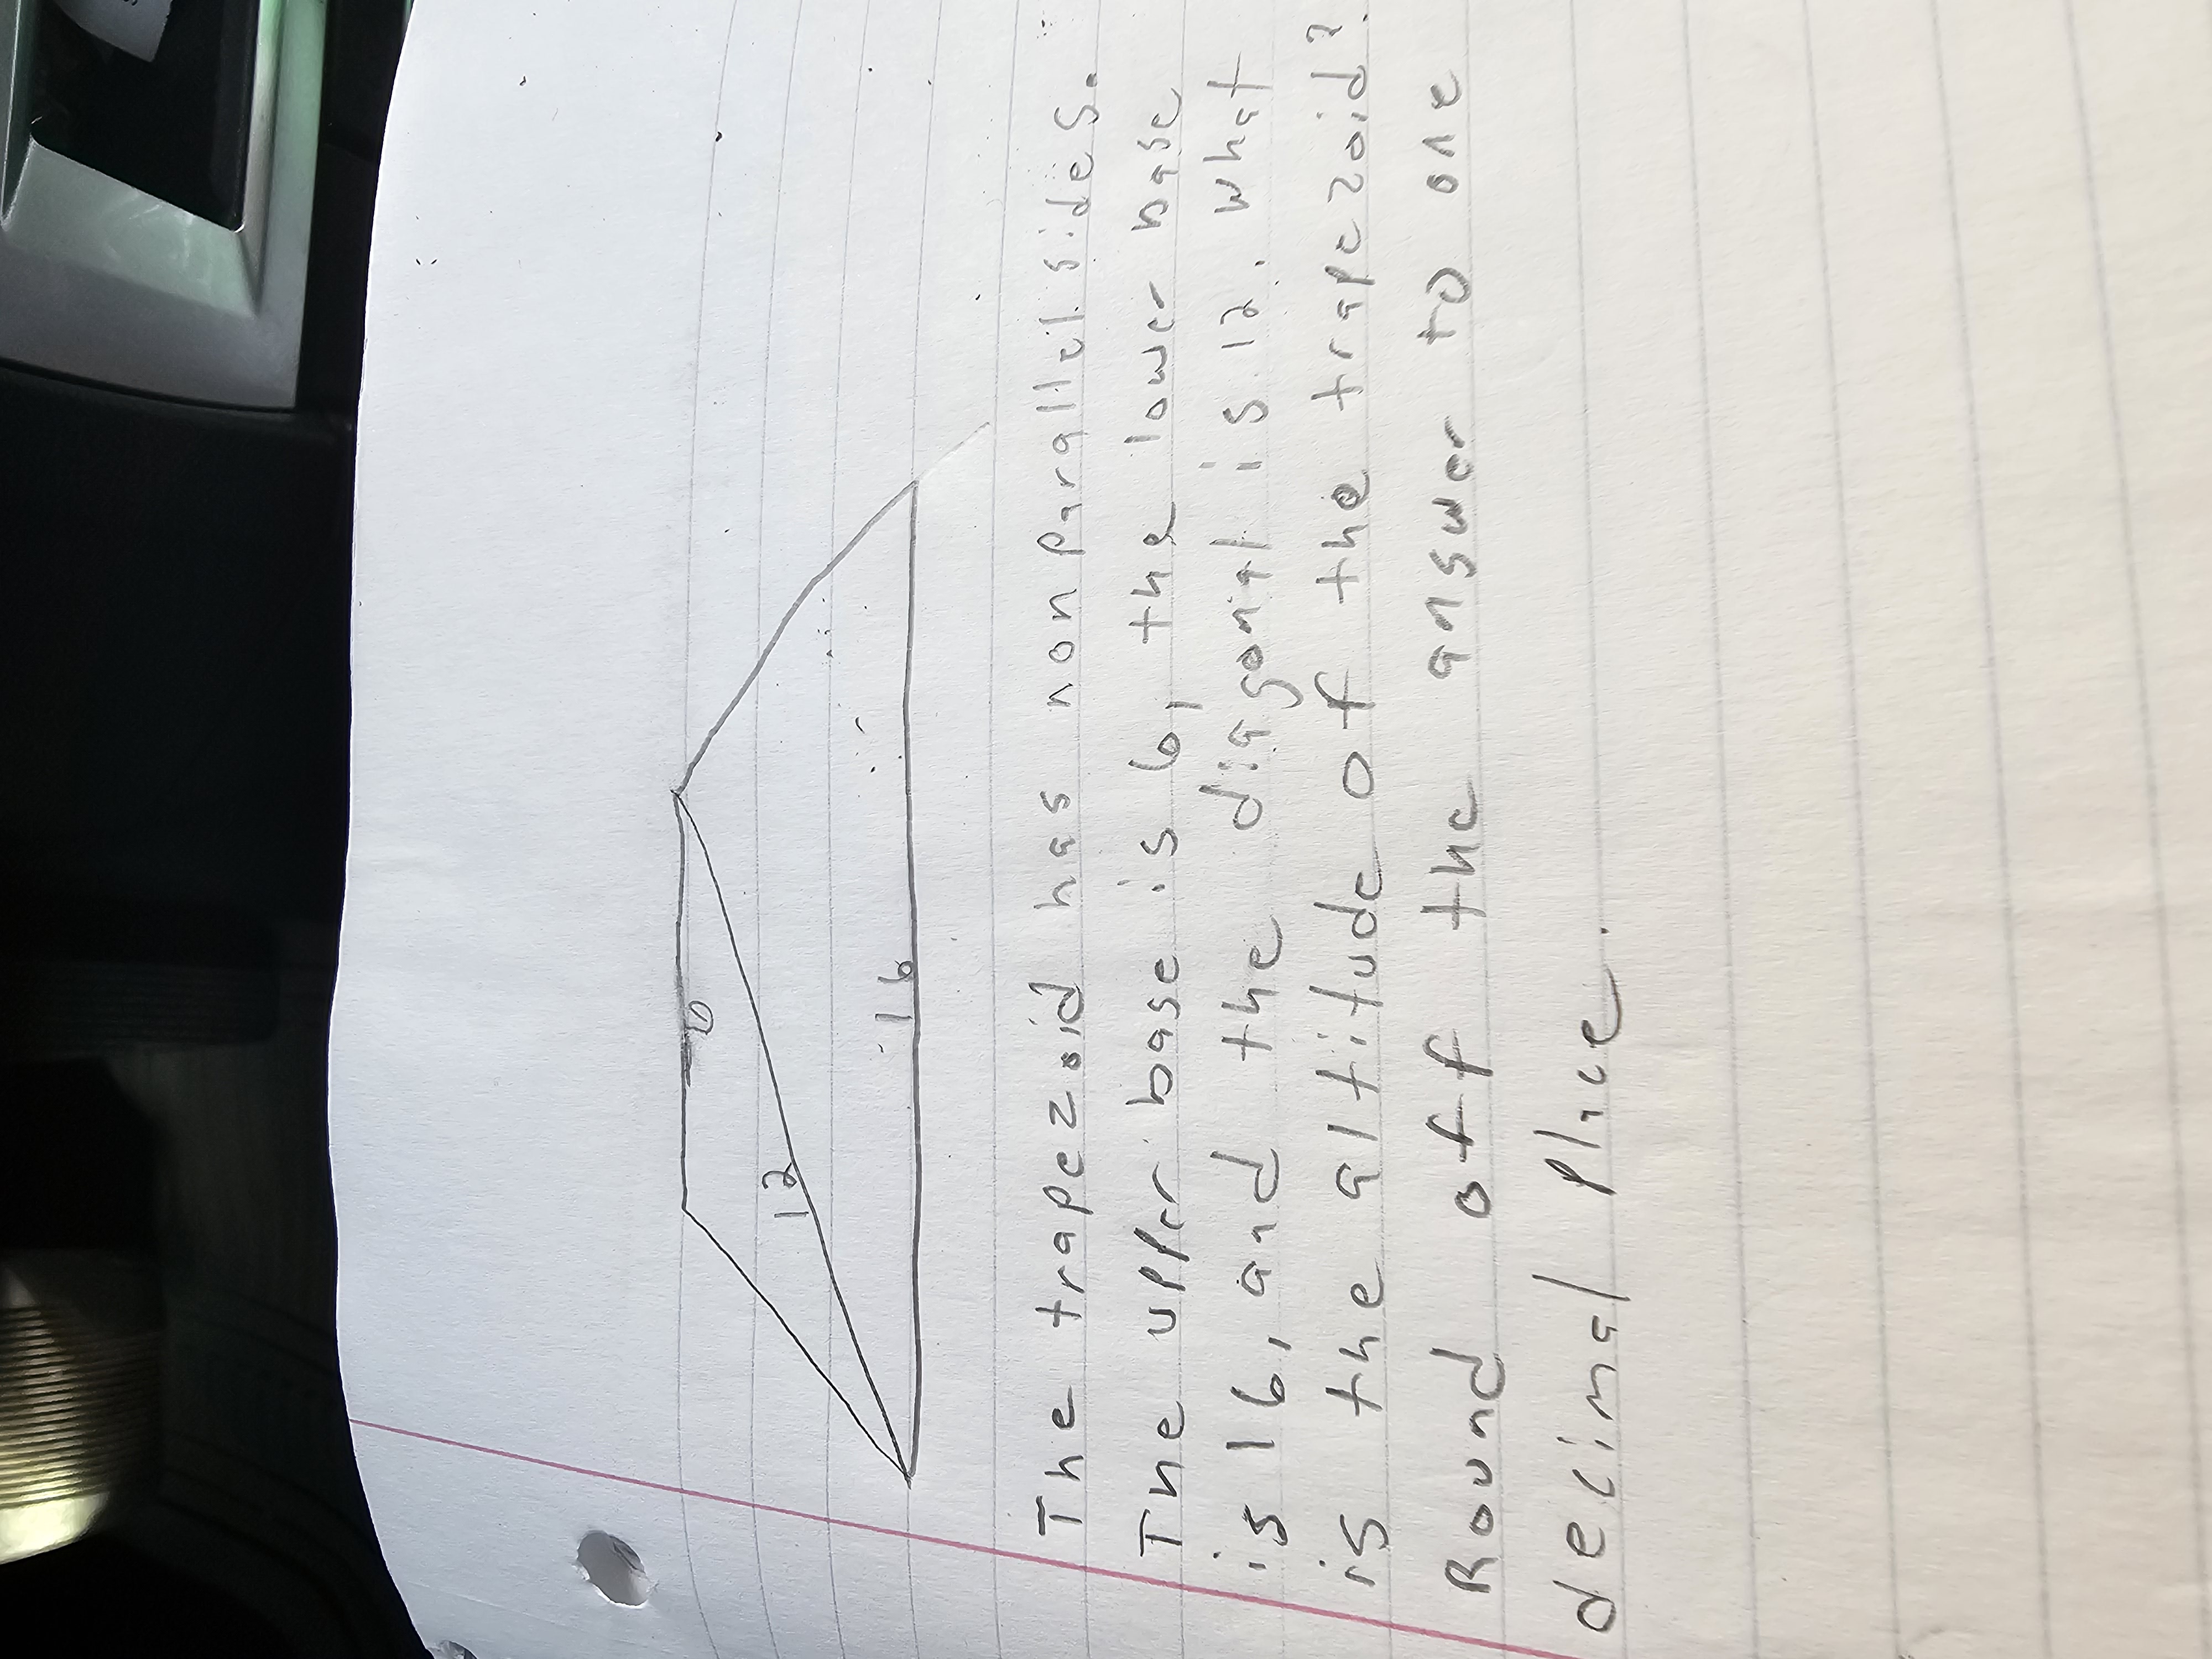 6
12
16
The trapezoid has non parallel sides.
The upper base is 6, the lower base
is 16, and the diagonal is 12. what
is the altitude of the trapezoid?
Round off the answer to one
decimal place.